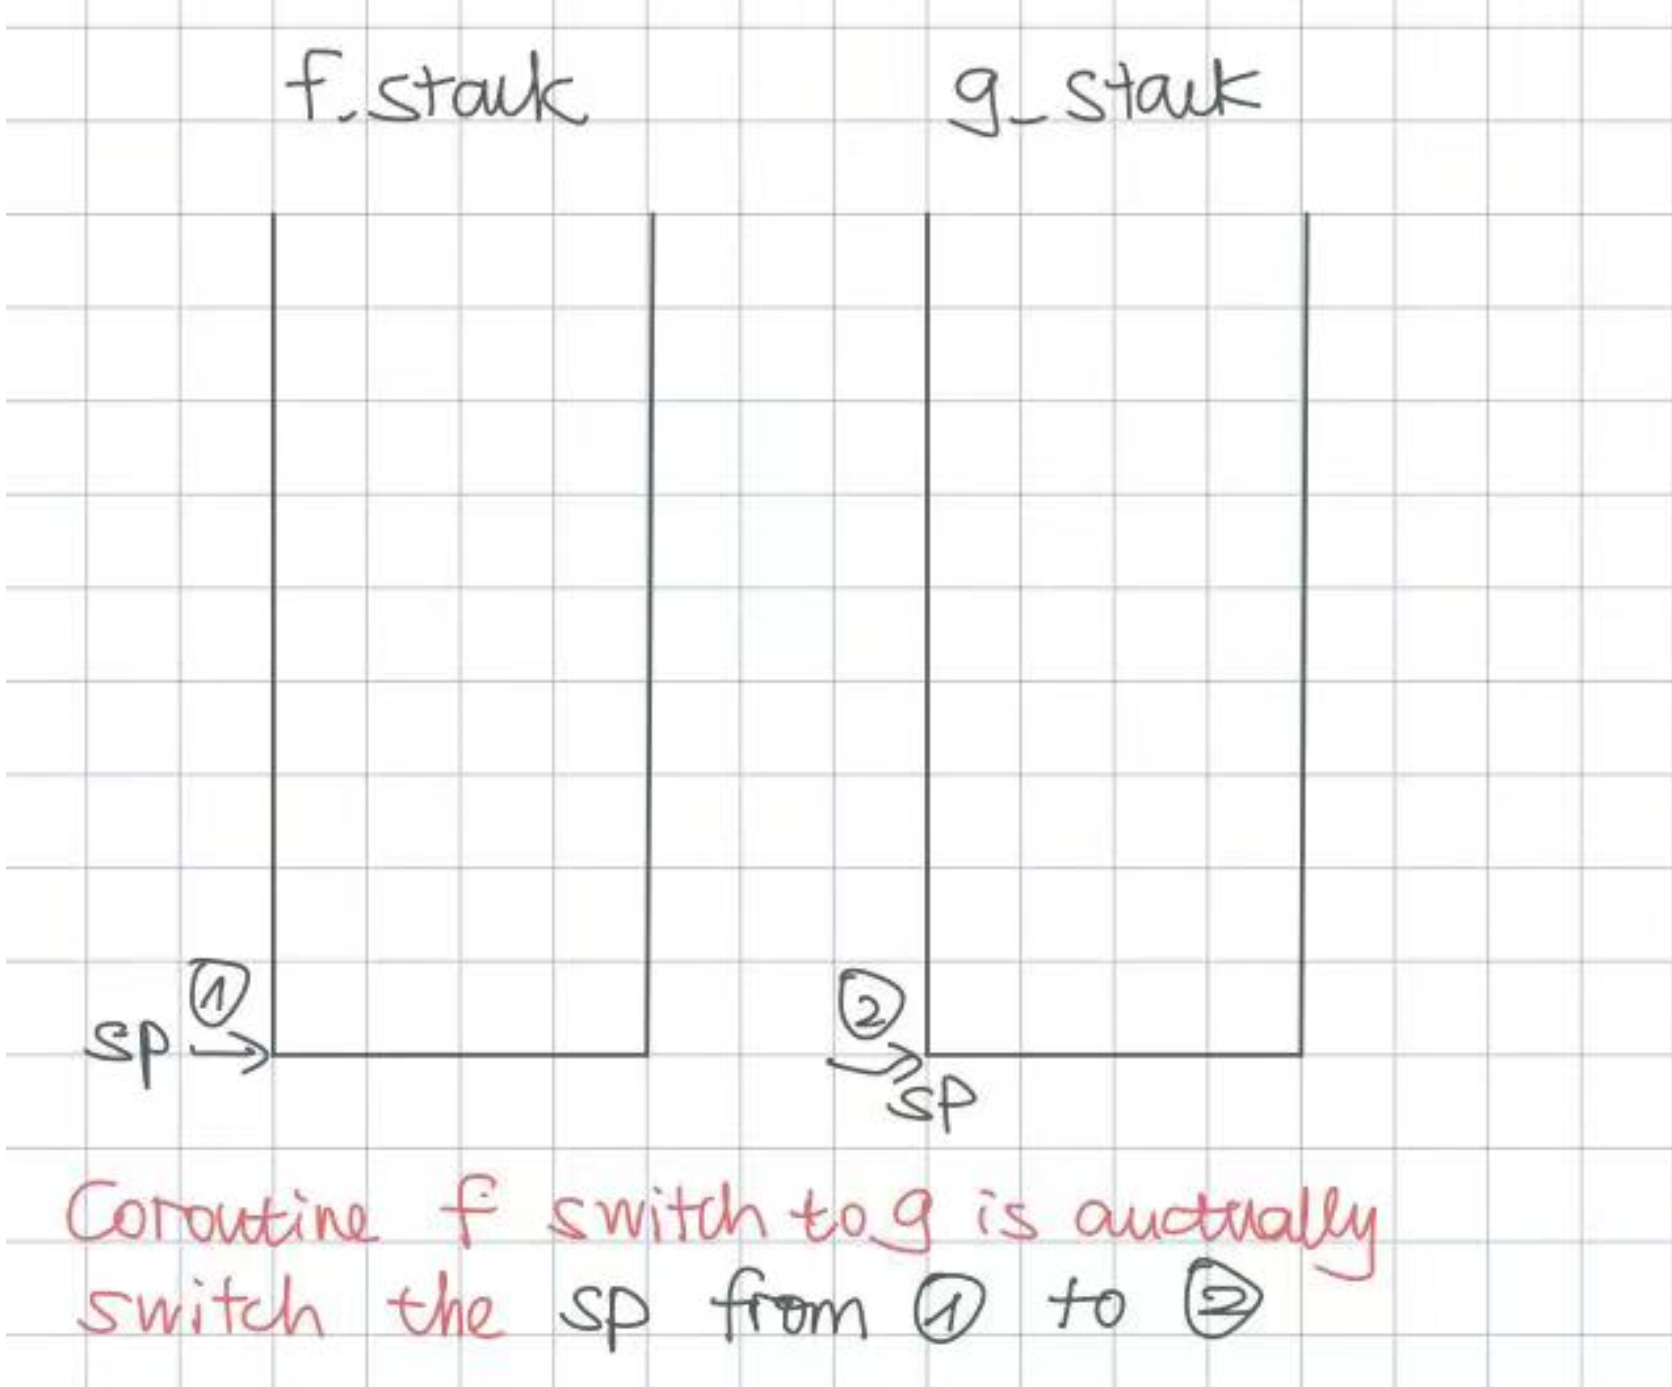 f_stack
g_stack
①
sp
②
sp
Coroutine f switch to g is auctually
switch the sp from ① to ②